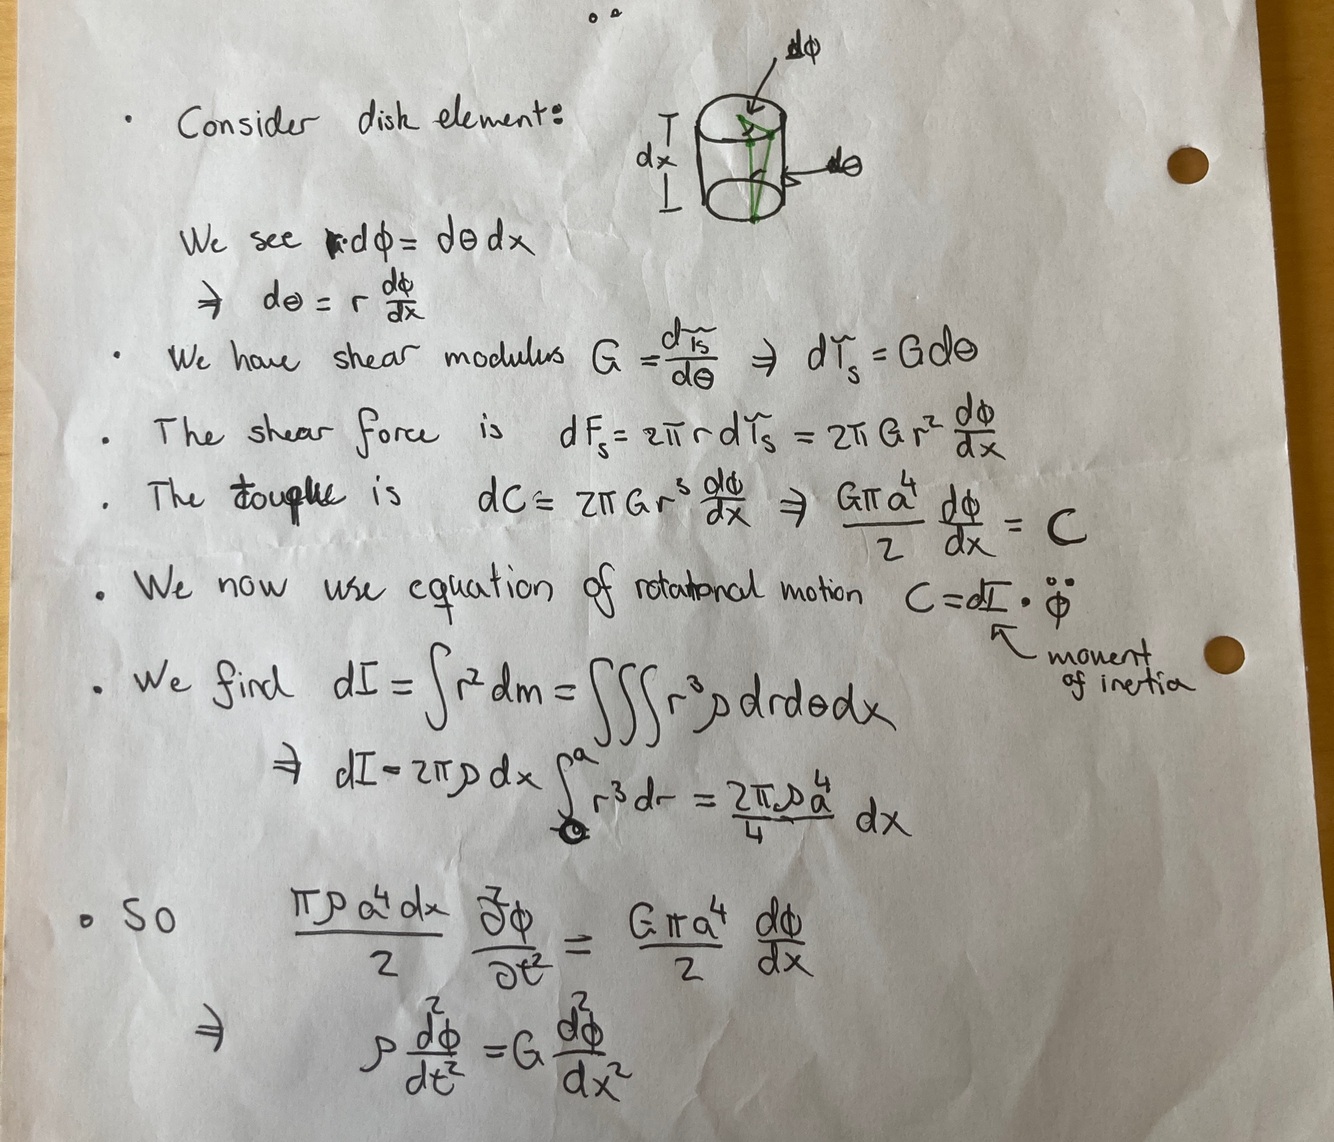 dϕ
• Consider disk element:
dx
dθ
We see r·dϕ = dθ dx
⇒ dθ = r dϕ/dx
• We have shear modulus G = dτs/dθ ⇒ dτs = G dθ
• The shear force is dFs = 2π r dτs = 2π G r² dϕ/dx
• The touqhe is dC = 2π G r³ dϕ/dx ⇒ Gπa⁴/2 dϕ/dx = C
• We now use equation of rotational motion C = dI · ϕ̈
moment
of inertia
• We find dI = ∫r² dm = ∭r³ρ dr dθ dx
⇒ dI = 2πρ dx ∫₀ᵃ r³ dr = 2πρa⁴/4 dx
• So πρa⁴dx/2 ∂²ϕ/∂t² = Gπa⁴/2 dϕ/dx
⇒ ρ d²ϕ/dt² = G d²ϕ/dx²